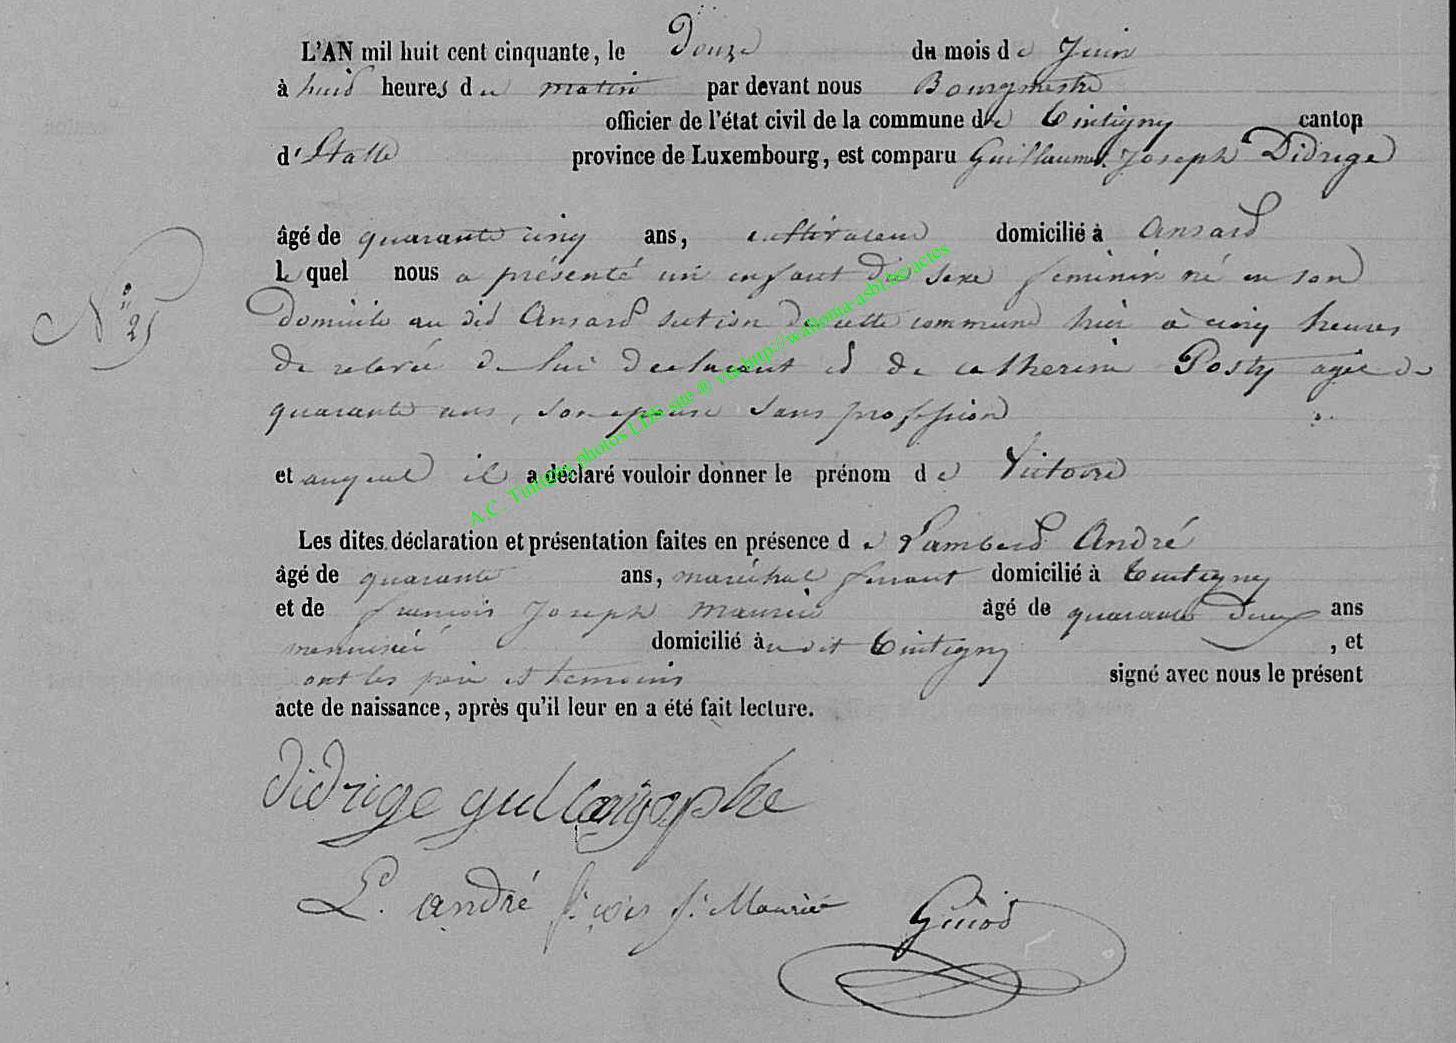 L'AN mil huit cent cinquante, le Douze du mois de Juin
à huid heures du matin par devant nous Bourgmestre
officier de l'état civil de la commune de Tintigny canton
d'Etalle province de Luxembourg, est comparu Guillaume Joseph Didrige
âgé de quarante cinq ans, cultivateur domicilié à Ansard
lequel nous a présenté un enfant de sexe feminin né en son
N° 25
Domicile au did Ansard section de cette commune hier à cinq heures
de relevée de lui declarent et de catherine Posty agée de
quarante ans, son epouse sans profession
et auquel il a déclaré vouloir donner le prénom de Victoire
Les dites déclaration et présentation faites en présence de Lamberd André
âgé de quarante ans, maréchal ferrant domicilié à Tintigny
et de françois Joseph Maurice âgé de quarante deux ans
menuisié domicilié audit Tintigny, et
ont les père et temoins signé avec nous le présent
acte de naissance, après qu'il leur en a été fait lecture.
A.C. Tintigny photos LDS site ® via http://walloma-asbl.be/actes
Didrige
L. andré f. çois J. Maurice